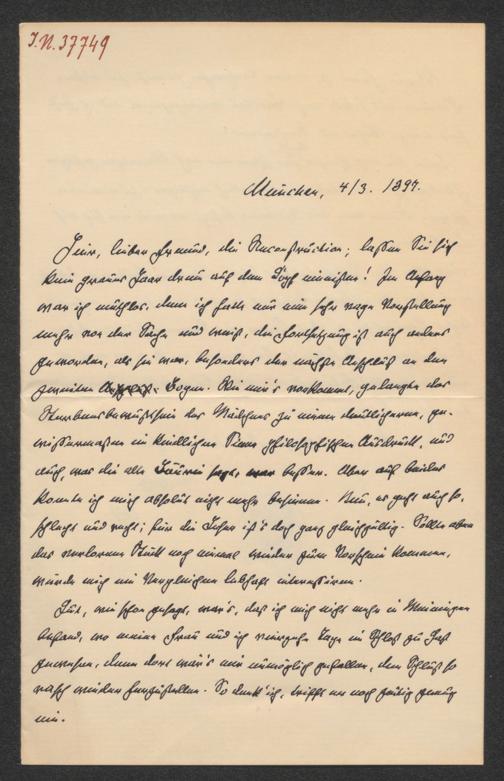 I.N. 37749
München, 4/3. 1897.
Hier, lieber Freund, die Reconstruction; lassen Sie sich
kein graues Haar drum auf dem Kopf wachsen! Im Anfang
war ich muthlos, denn ich hatte nur eine sehr vage Vorstellung
mehr von der Sache und weiß, die Fortsetzung ist auch anders
geworden, als sie war, besonders der nächste Anschluß an den
zweiten Bogen. Wie mir's vorkommt, gelangte das
Sterbensbewußtsein des Mädchens zu einem deutlicheren, ge-
wissermaßen im kindlichen Sinne philosophischen Ausdruck, und
auch, was die alte sagt, war besser. Aber auf beides
konnte ich mich absolut nicht mehr besinnen. Nun, es geht auch so,
schlecht und recht; für die Leser ist's doch ganz gleichgültig. Sollte aber
das verlorene Stück noch einmal wieder zum Vorschein kommen,
würde mich ein Vergleichen lebhaft interessiren.
Gut, wie schon gesagt, war's, daß ich mich nicht mehr in Meiningen
befand, wo meine Frau und ich vierzehn Tage im Schloß zu Gast
gewesen, denn dort wär's mir unmöglich gefallen, den Schluß so
rasch wieder herzustellen. So denk' ich, trifft er noch zeitig genug
ein.